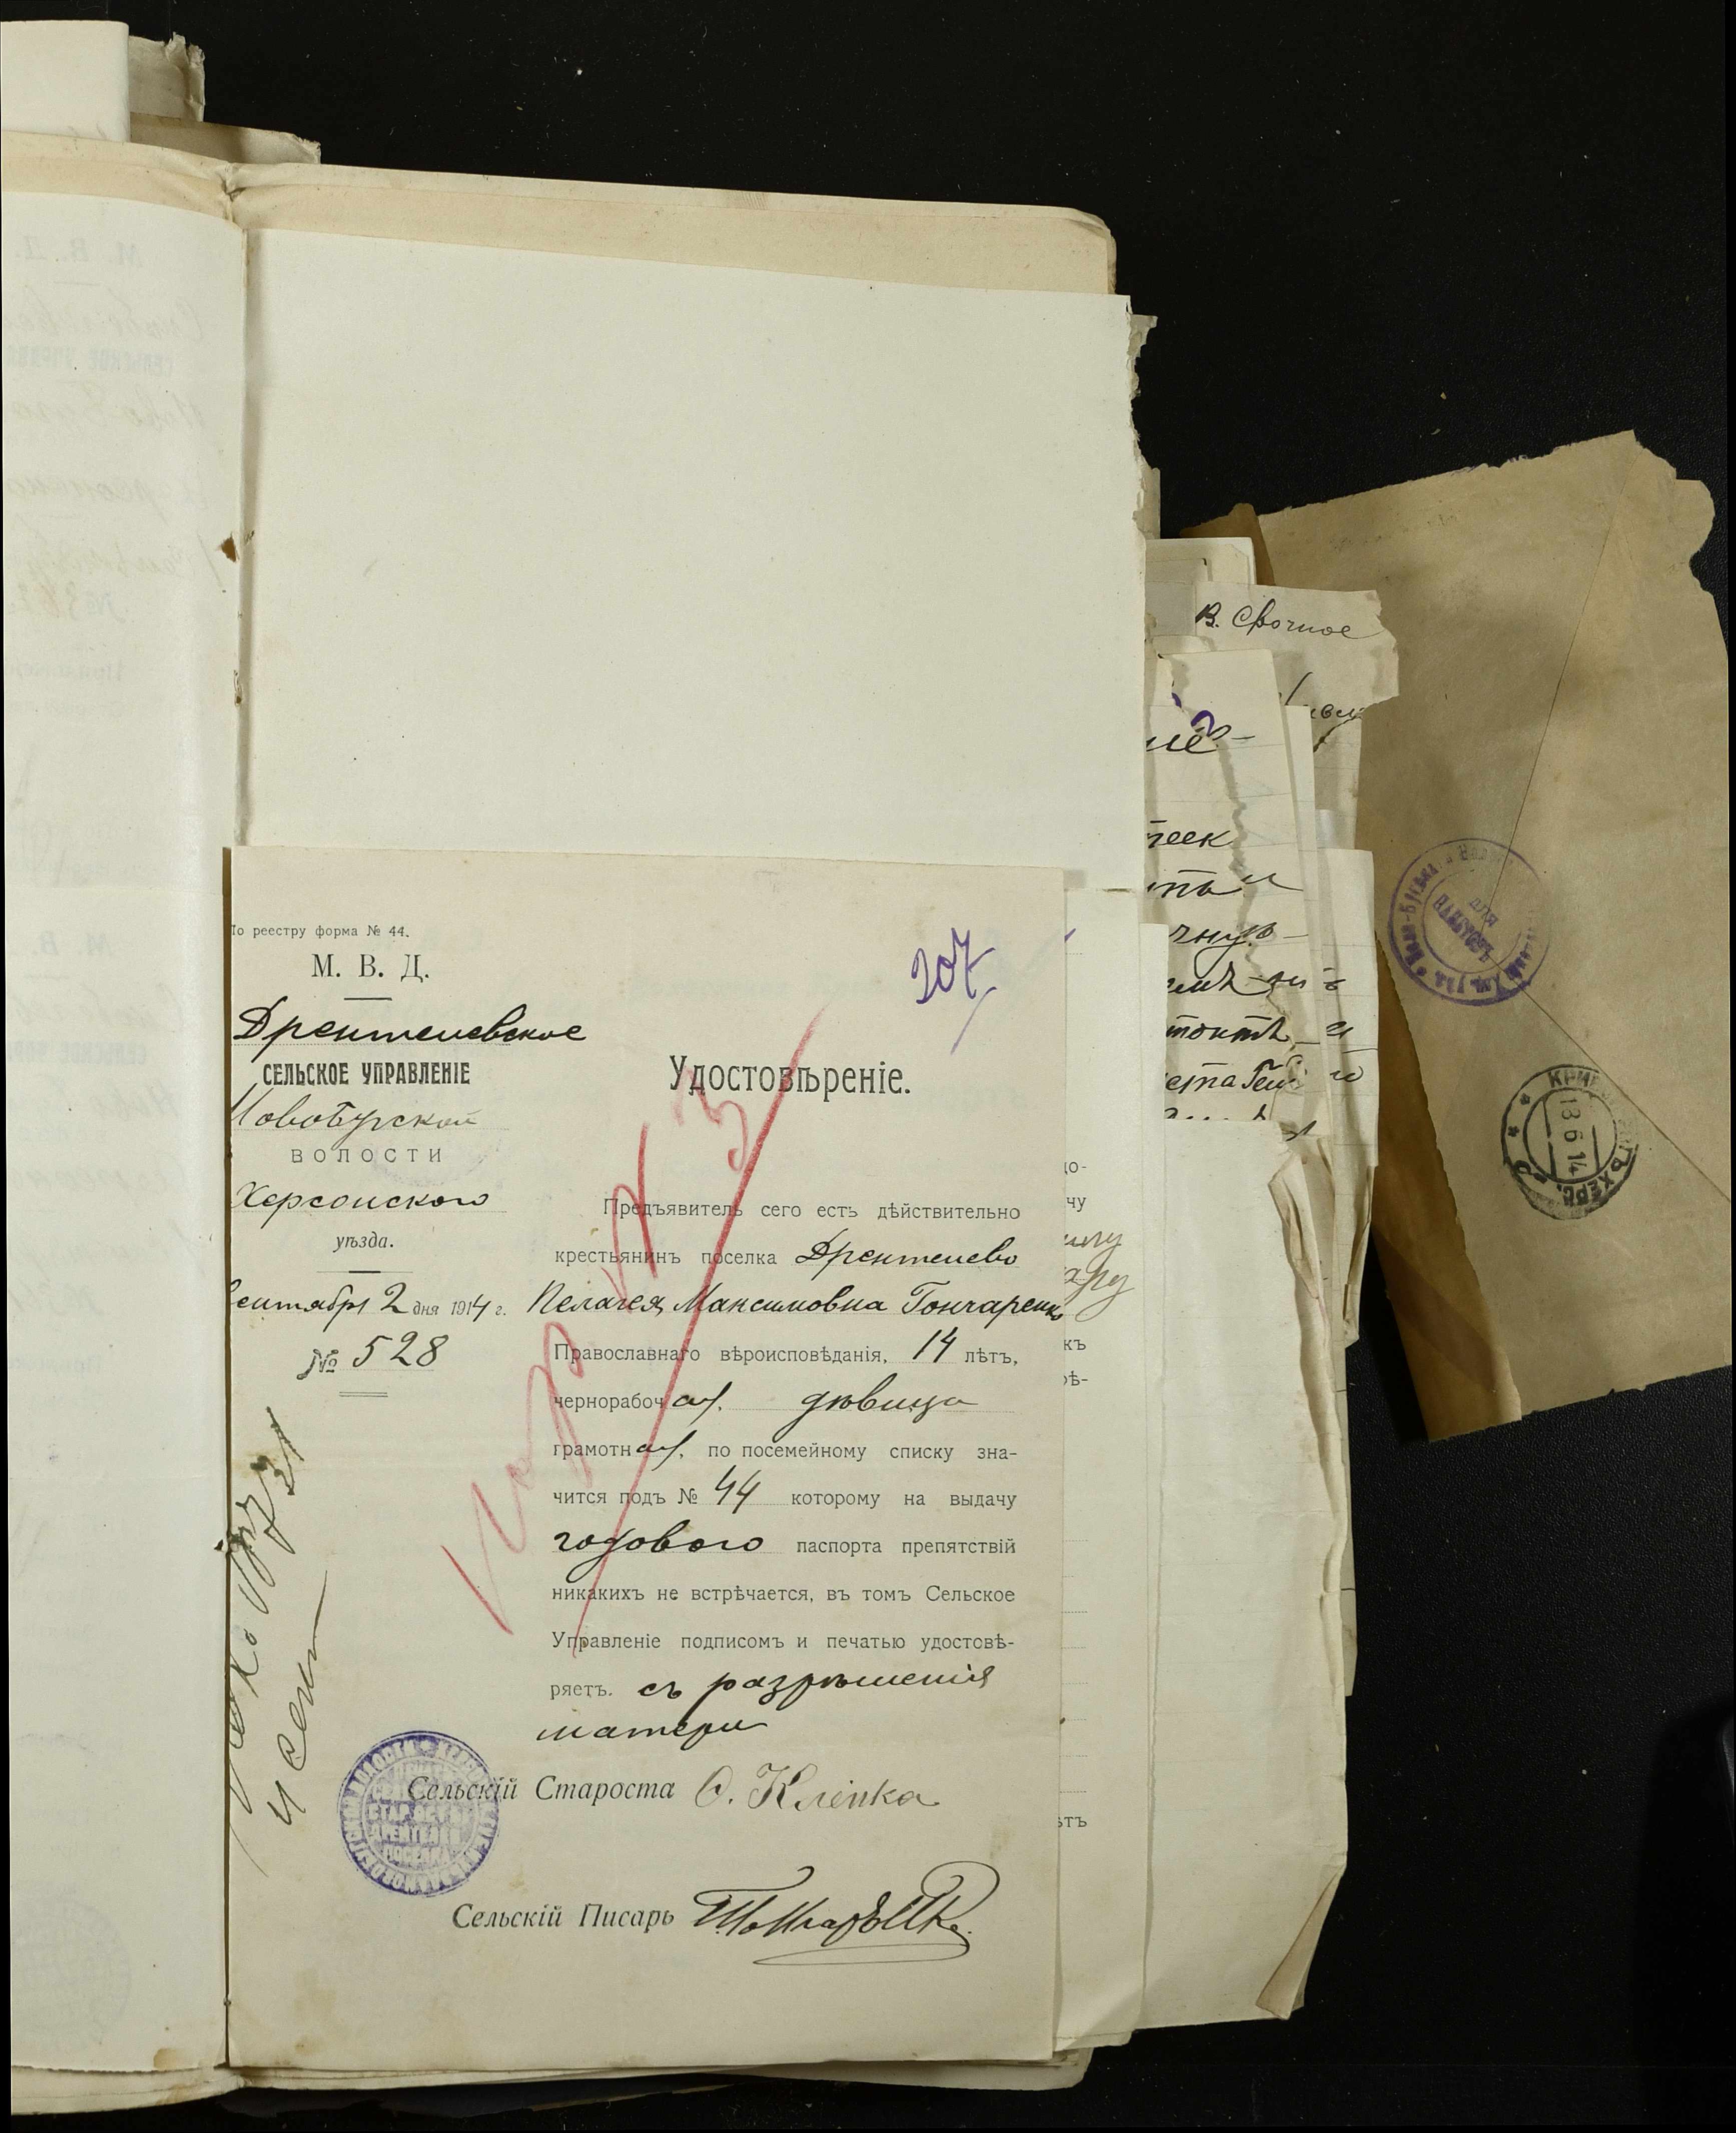 По реестру форма № 44.
М. В. Д.
Дрентелевское
СЕЛЬСКОЕ УПРАВЛЕНІЕ
Новобугской
ВОЛОСТИ
Херсонского
уѣзда.
Сентября 2 дня 1914 г.
№ 528
207
Удостовѣреніе.
Предъявитель сего есть дѣйствительно
крестьянинъ поселка Дрентелево
Пелагея Максимовна Гончаренко
Православнаго вѣроисповѣданія, 14 лѣтъ,
чернорабочая. дѣвица
грамотная, по посемейному списку зна-
чится подъ № 44 которому на выдачу
годового паспорта препятствій
никакихъ не встрѣчается, въ томъ Сельское
Управленіе подписомъ и печатью удостовѣ-
ряетъ. съ разрѣшенія
матери
Сельскій Староста О. Клепка
Сельскій Писарь
4 Сент
В. Срочное
13 6 14